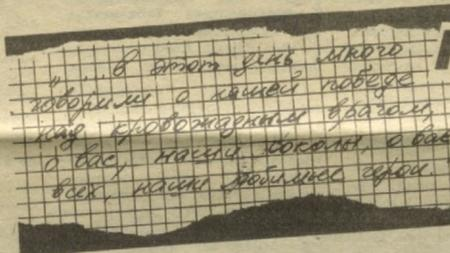 „ ...в этот день много
говорили о нашей победе
над кровожадным врагом,
о вас, наши соколы, о вас
всех, наши любимые герои.